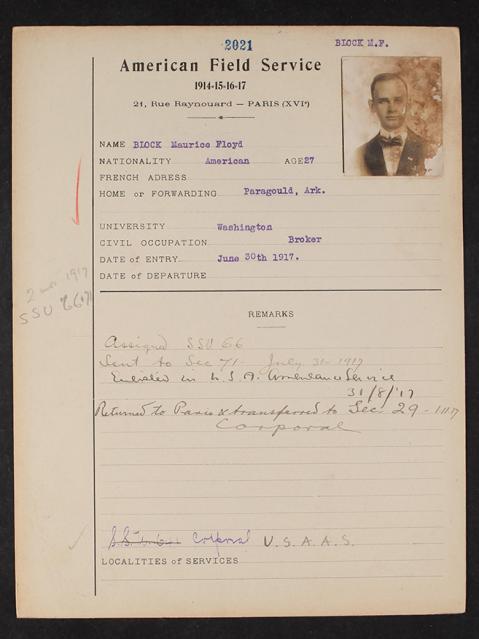 2021
BLOCK M.F.
American Field Service
1914-15-16-17
21, Rue Raynouard — PARIS (XVIe)
NAME BLOCK Maurice Floyd
NATIONALITY American AGE 27
FRENCH ADRESS
HOME or FORWARDING Paragould, Ark.
UNIVERSITY Washington
CIVIL OCCUPATION Broker
DATE of ENTRY June 30th 1917.
DATE of DEPARTURE
1917
SSU 66.71
REMARKS
Assigned SSU 66
Sent to Sec 71 - July 31 - 1917
Enlisted in U.S.A. Ambulance Service
31/8/17
Returned to Paris & transferred to Sec. 29 -
Corporal
Corporal U.S.A.A.S.
LOCALITIES of SERVICES